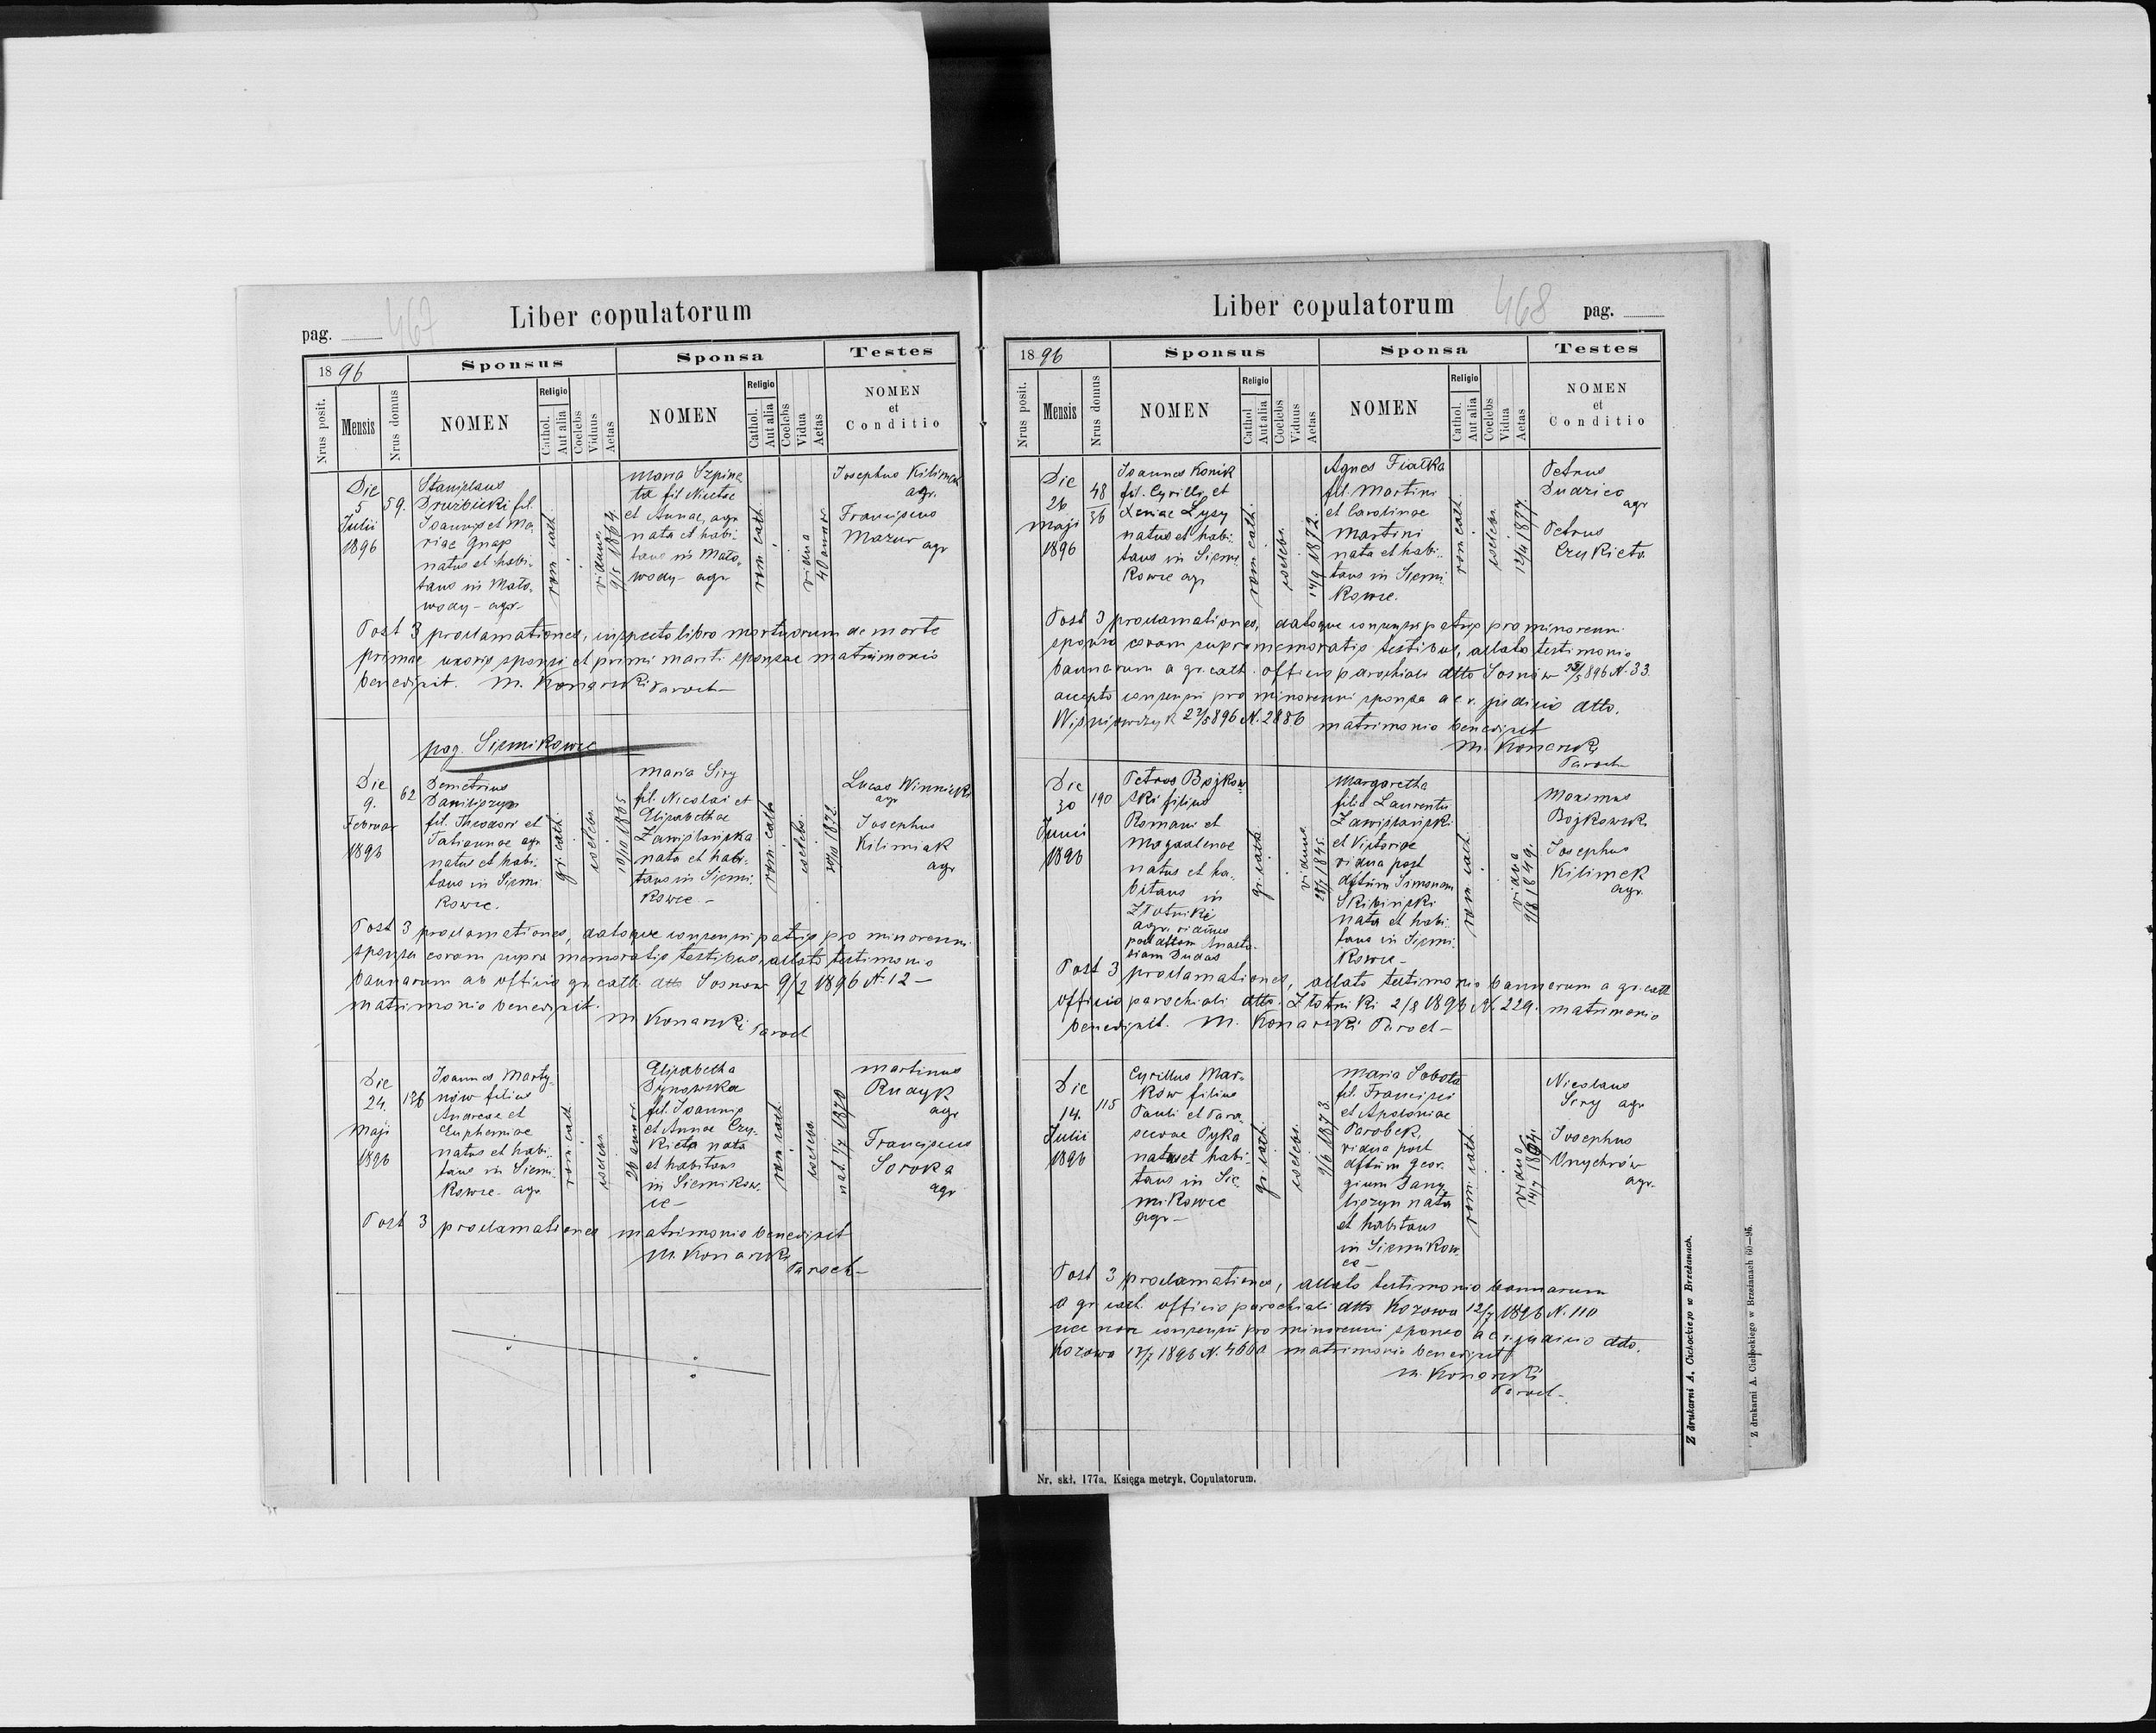 Liber copulatorum
pag. 467
18 96
Sponsus
Sponsa
Testes
Nrus posit.
Mensis
Nrus domus
NOMEN
Religio
Cathol.
Aut alia
Coelebs
Viduus
Aetas
NOMEN
Religio
Cathol.
Aut alia
Coelebs
Vidua
Aetas
NOMEN
et
Conditio
Die
5
Julii
1896
59.
Stanislaus
fil.
Joannis et Ma-
riae Gnap
natus et habi-
tans in Mało-
wody - agr-
rom. cath.
viduus
9/5 1864.
Maria Szpina
ta fil Nicetae
et Annae, agr
nata et habi-
tans in Mało-
wody - agr
rom. cath.
vidua
40 annor.
Josephus
agr.
Franciscus
Mazur agr
Post 3 proclamationes, inspecto libro mortuorum de morte
primae uxoris sponsi et primi mariti sponsae matrimonio
benedixit. M. Konarski Paroch-
pag. Siemikowce
Die
9.
Februar
1896
62
Demetrius
Daniliszyn
fil. Theodori et
Tatiannae agr
natus et habi-
tans in Siemi-
kowce.
gr. cath.
coelebs.
10/10 1865
Maria Siry
fil. Nicolai et
Elisabethae
Zawiślańska
nata et habi-
tans in Siemi-
kowce -
rom. cath.
coelebs.
1872.
Lucas Winnicki
agr
Josephus
Kilimiak
agr
Post 3 proclamationes, datoque consensu patris pro minorenni
sponsa coram supra memoratis testibus, allato testimonio
bannarum ab officio gr. cath. dtto Sosnow 9/2 1896 N. 12 -
matrimonio benedixit.
M Konarski Paroch
Die
24.
Maji
1896
176
Joannes Marty-
nów filius
Andreae et
Euphemiae
natus et habi-
tans in Siemi-
kowce - agr
rom. cath.
coelebs.
26 annor.
Elisabetha
Dynowska
fil. Joannis
et Annae Czy-
kieta nata
et habitans
in Siemikow-
ce -
rom. cath.
coelebs.
nat. 1/7 1870
Martinus
Rudyk
agr
Franciscus
Soroka
agr
Post 3 proclamationes matrimonio benedixit
M. Konarski
Paroch-
Liber copulatorum
468 pag.
18 96
Sponsus
Sponsa
Testes
Nrus posit.
Mensis
Nrus domus
NOMEN
Religio
Cathol.
Aut alia
Coelebs
Viduus
Aetas
NOMEN
Religio
Cathol.
Aut alia
Coelebs
Vidua
Aetas
NOMEN
et
Conditio
Die
26
Maji
1896
48
36
Joannes Konik
fil. Cyrilli et
Xeniae Lysy
natus et habi-
tans in Siemi-
kowce agr
rom. cath.
coelebs.
14/9 1872.
Agnes Fiałka
fil. Martini
et Carolinae
Martini
nata et habi-
tans in Siemi-
kowce.
rom. cath.
coelebs.
12/4 1877.
Petrus
Dudzico
agr
Petrus
Czykieta
Post 3 proclamationes, datoque consensu patris pro minorenni
sponsa coram supramemoratis testibus, allato testimonio
bannarum a gr. cath. officio parochiali dtto Sosnów 896 N. 33.
accepto consensu pro minorenni sponsa a c. r. judicio dtto.
Wiśniowczyk 22/5 896 N. 2886 matrimonio benedixit
M. Konarski
Paroch-
Die
30
Junii
1896
190
Petrus Bojkow-
ski filius
Romani et
Magdalenae
natus et ha-
bitans in
Złotniki
agr. viduus
post dttam Anasta-
siam Dudas
gr. cath.
viduus
1845.
Margaretha
filia Laurentii
Zawiślański
et Victoriae
vidua post
dftum Simonem
Skibiński
nata et habi-
tans in Siemi-
kowce -
rom. cath.
vidua
9/8 1849.
Maximus
Bojkowski
Josephus
Kilimek
agr.
Post 3 proclamationes, allato testimonio bannorum a gr. cath
officio parochiali dtto. Złotniki 2/8 1896 N. 229. matrimonio
benedixit. M. Konarski Paroch-
Die
14.
Julii
1896
115
Cyrillus Mar-
ków filius
Pauli et Para-
scevae Pyka
natus et habi-
tans in Sie-
mikowce
agr -
gr. cath.
coelebs.
9/6 1873.
Maria Sobota
fil. Francisci
et Apoloniae
Parobek,
vidua post
dftum Geor-
gium Dany-
liszyn nata
et habitans
in Siemikow-
ce -
rom. cath.
vidua
14/7 1864.
Nicolaus
Siry agr
Josephus
Onychrów
agr.
Post 3 proclamationes, allato testimonio bannarum
a gr. cath. officio parochiali dtto Kozowa 12/7 1896 N. 110
nec non consensu pro minorenni sponso a c. r. judicio dtto.
Kozowa 13/7 1896 N. matrimonio benedixit
M. Konarski
Paroch-
Nr. skł. 177a. Księga metryk. Copulatorum.
Z drukarni A. Cichockiego w Brzeżanach.
Z drukarni A. Cichockiego w Brzeżanach 60—95.